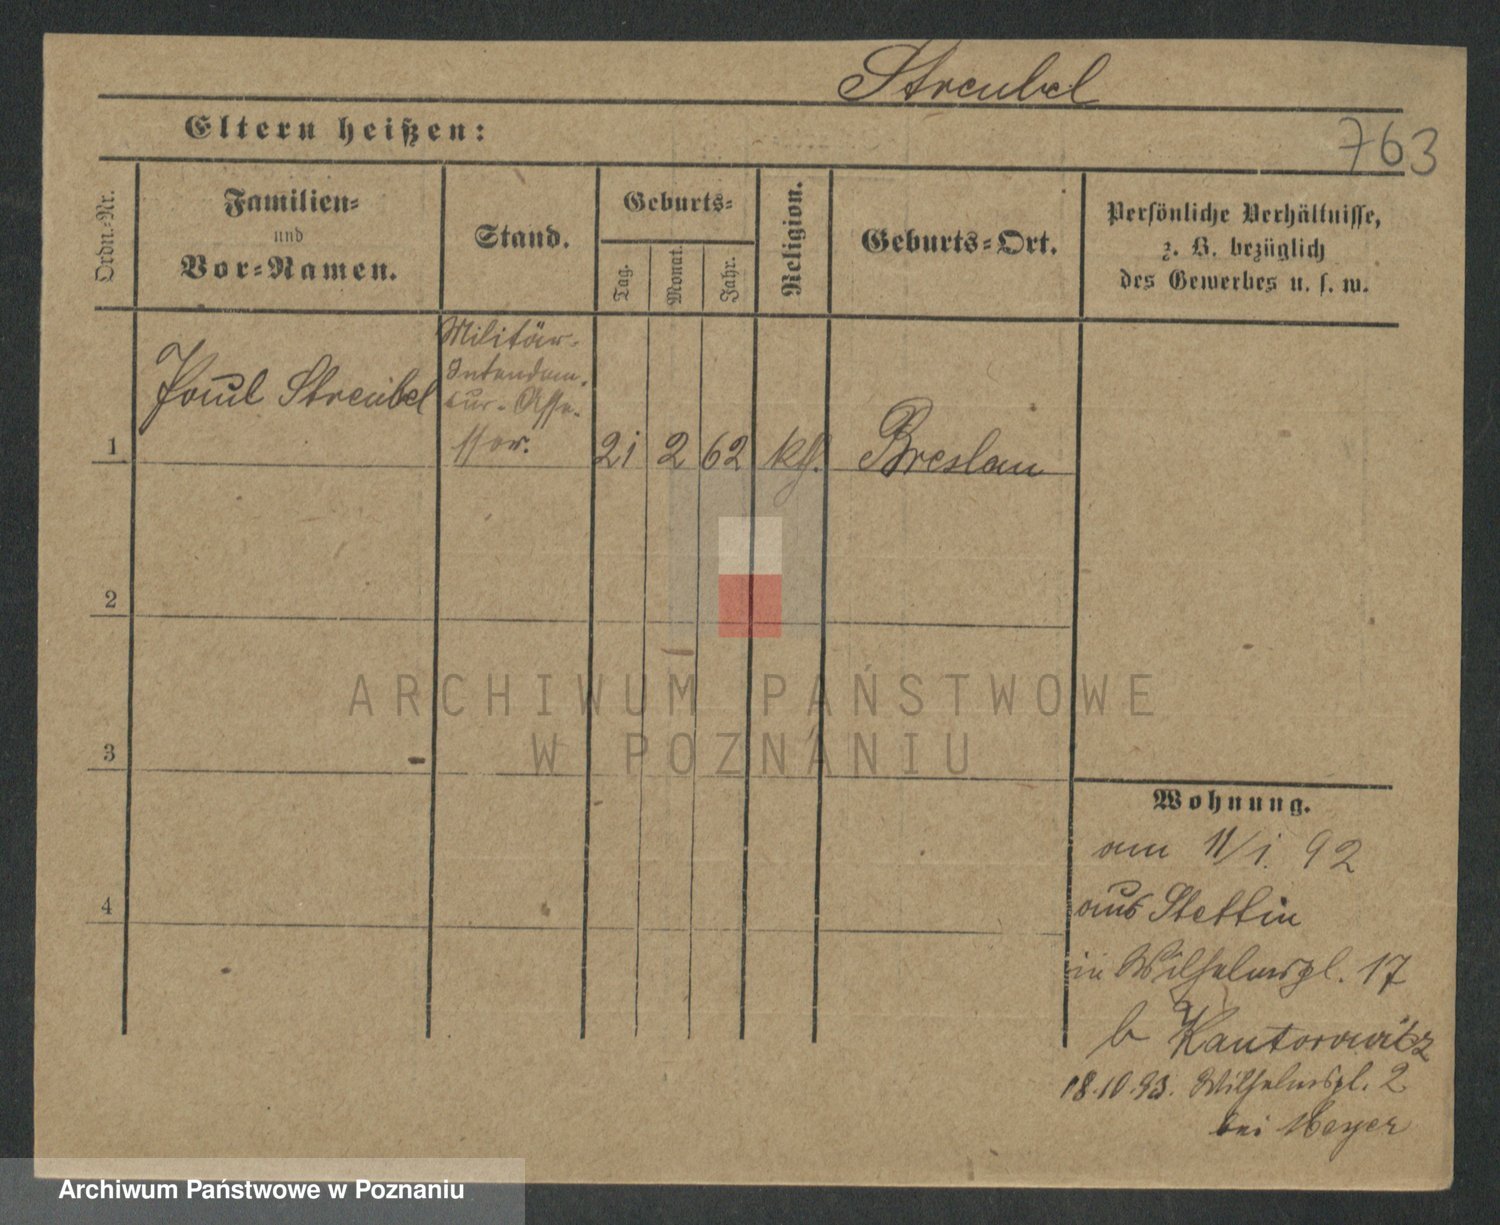 Streubel
Eltern heißen:
763
Ordn.-Nr.
Familien-
und
Vor-Namen.
Stand.
Geburts-
Tag.
Monat.
Jahr.
Religion.
Geburts-Ort.
Persönliche Verhältnisse,
z. B. bezüglich
des Gewerbes u. s. w.
1
Paul Streubel
Militär-
Intendan-
tur-Asse-
ssor.
21
2
62
kth.
Breslau
2
3
4
ARCHIWUM PAŃSTWOWE
W POZNANIU
Wohnung.
am 11/1. 92
aus Stettin
in Wilhelmspl. 17
b Kantorowitz
18.10.93. Wilhelmspl. 2
bei Meyer
Archiwum Państwowe w Poznaniu